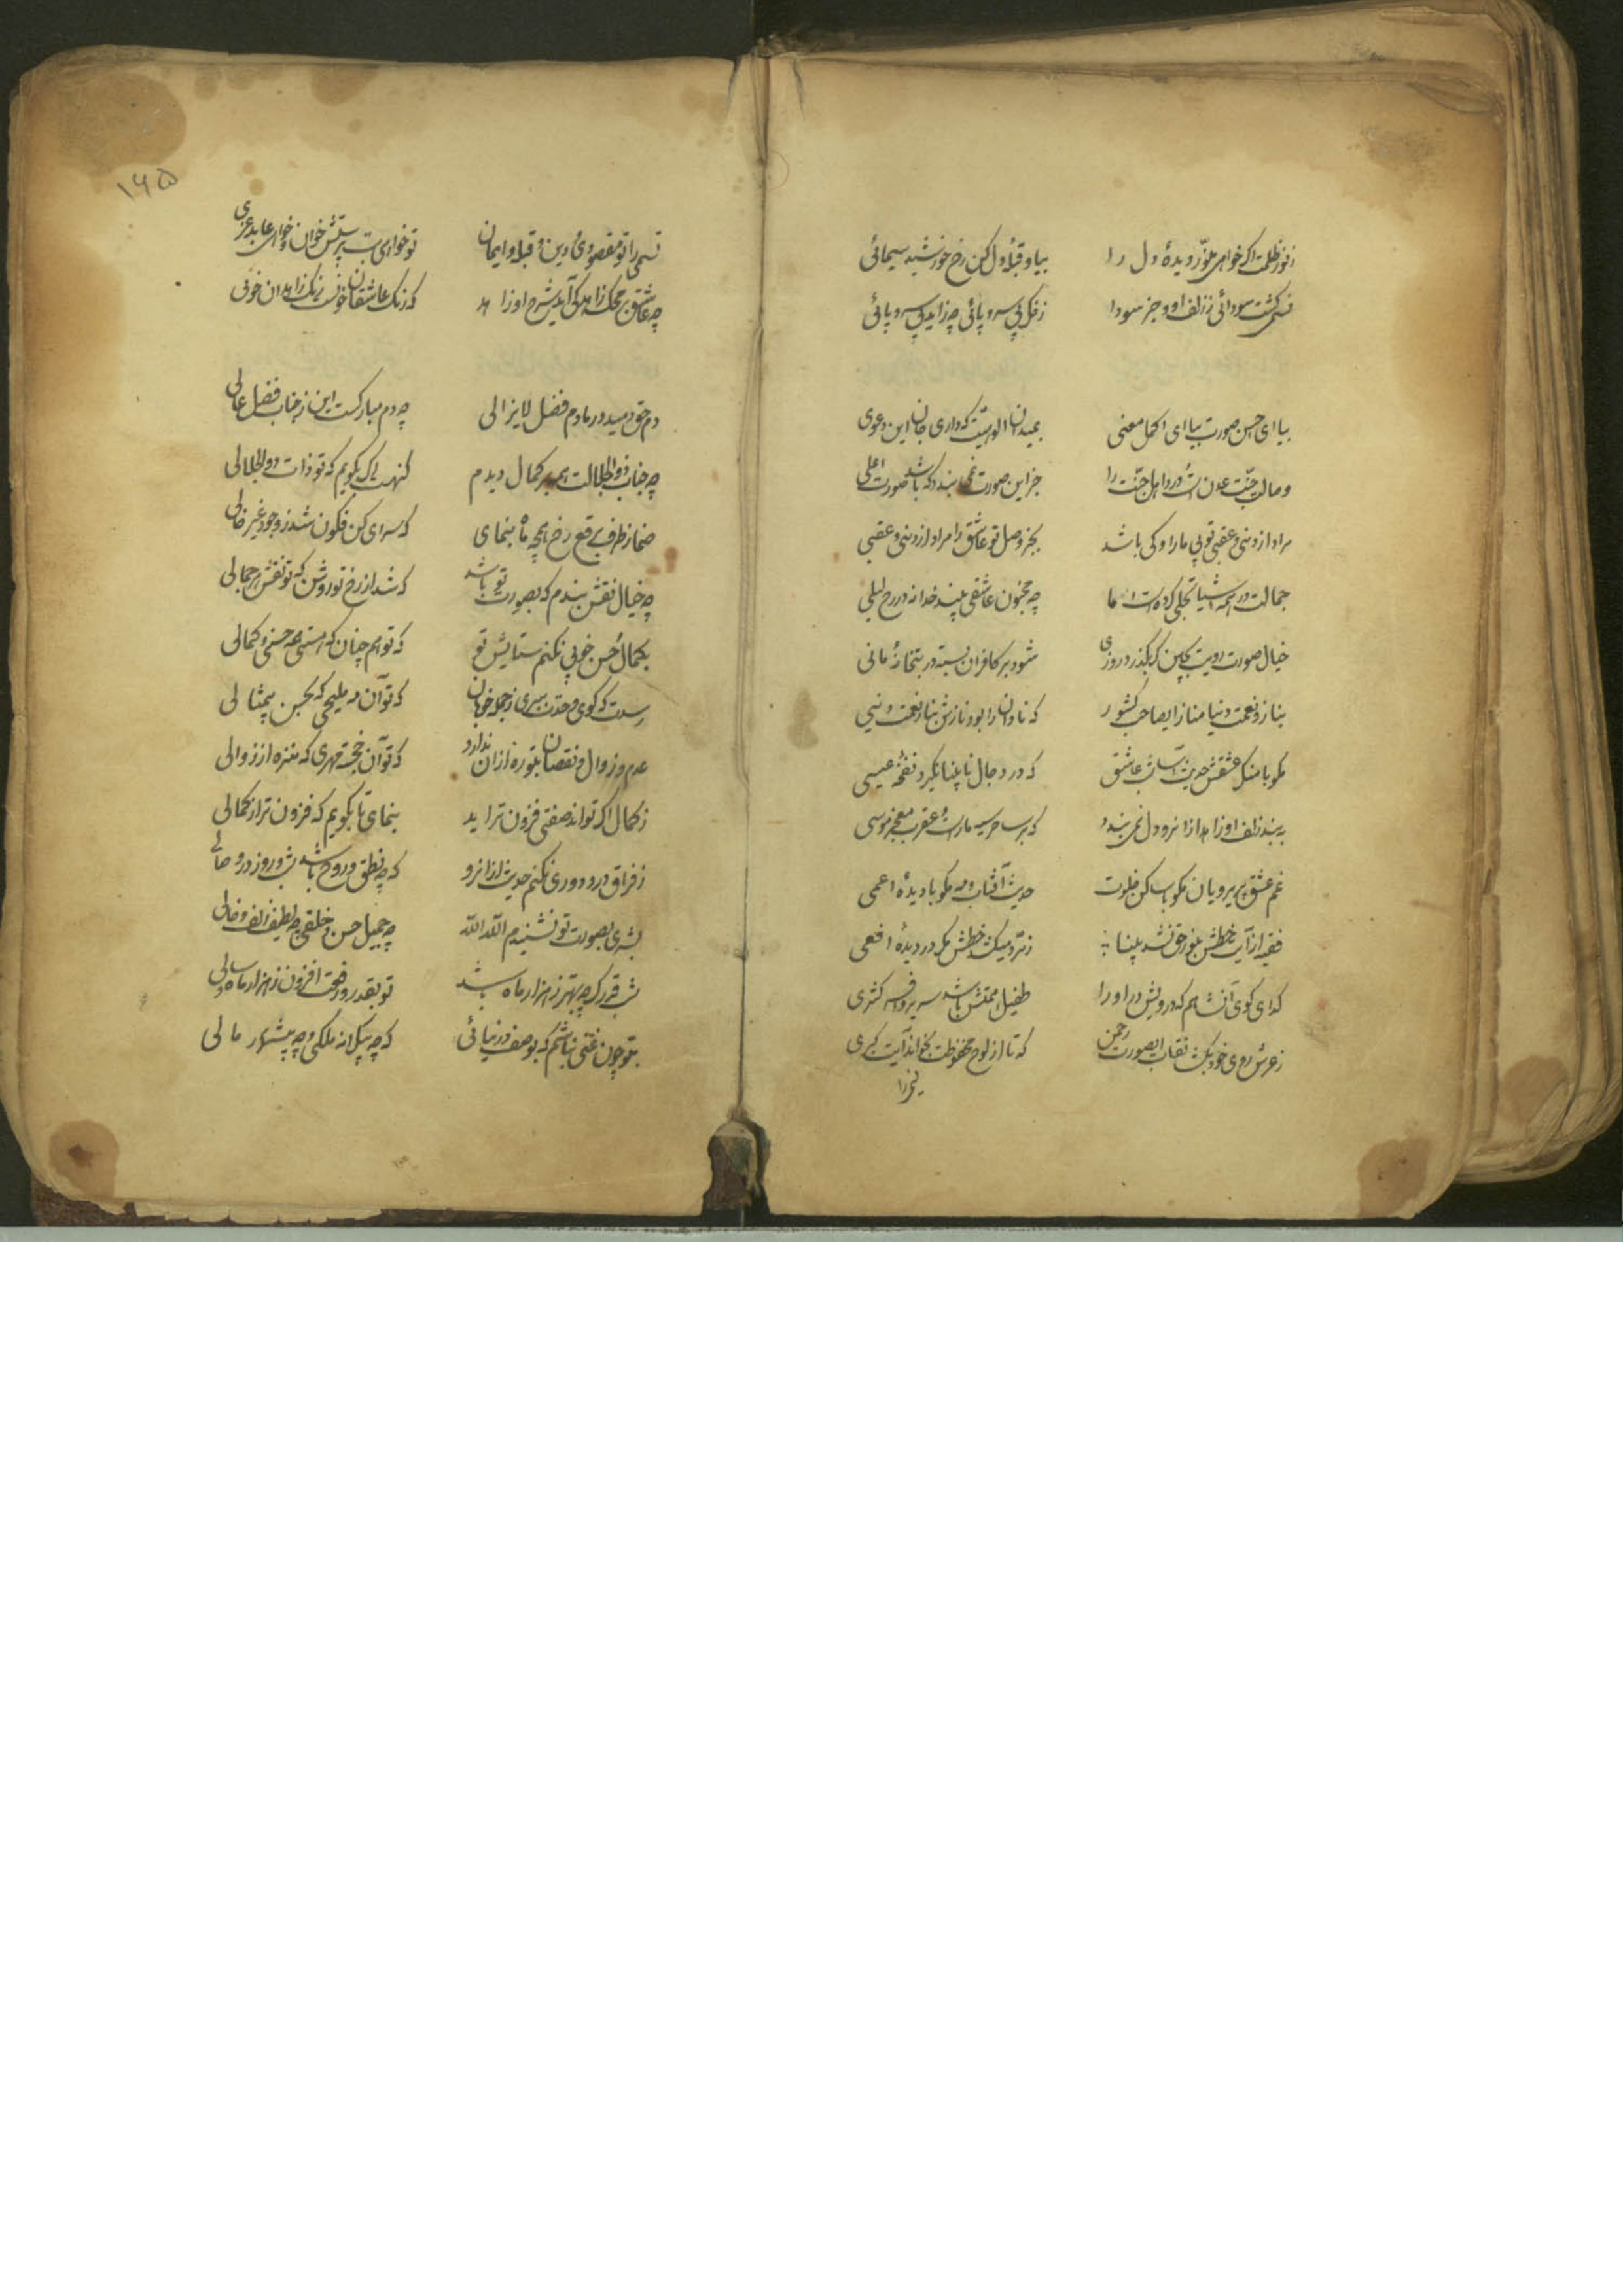 ز نور ظلمت اگر خواهی منور دیده دل را بیا و قبله دل کن رخ خورشید سیمائی
نسیمی گشت سودائی ز زلف او و جز سودا ز فکر بی سر و پائی چه زاید بی سر و پائی
بیا ای احسن صورت بیا ای اکمل معنی الوهیت که داری جان این دعوی
وصالت جنت عدنست در دل اهل جنت را جز این صورت نمی بندد که باشد صورت اعلی
مراد از دنیی و عقبی توئی ما را و کی باشد بجز وصل تو عاشق را مراد از دنیی و عقبی
جمالت در همه اشیا تجلی کرده است اما چه مجنون عاشقی بیند خدا را در رخ لیلی
خیال صورت رویت بچین گر بگذرد روزی شود بر کافران بسته در بتخانه مانی
بناز و نعمت دنیا مناز ای صاحب کشور که نادان را بود نازش بناز نعمت دنیی
مگو با منکر عشقش حدیث عاشق که در دجال نابینا نگیرد نفخه عیسی
به بند زلف او زاهد از آنرو دل نمی بندد که بر ساحر سیه مارست و عقرب معجز موسی
غم عشق پریرویان مگو خلوت حدیث آفتاب و مه مگو با دیده اعمی
فقیه از آیت خطش بنور حق نشد بینا زمرد میکشد خطش مگر در دیده افعی
گدای کوی آن شاهم که درویش در او را طفیل همتش باشد سریر و افسر کسری
ز عرش روی خود بگشا نقاب ای صورت رحمن که تا از لوح محفوظت بخواند آیت کبری
۱۶۵
نسیمی را تو مقصودی و دین و قبله و ایمان تو خواهی بت پرستش خوان و خواهی عابد عزی
چه عاشق بر محک زاهد کی آید شرم او زاهد که رنگ عاشقان خونست رنگ زاهدان خونی
دم حق دمید در ما دم فضل لایزالی چه دم مبارکست این ز جناب فضل عالی
چه جناب ذوالجلالت همه بر کمال دیدم گنهست اگر بگویم که تو ذات ذوالجلالی
صنما ز طرف برقع رخ همچو ماه بنمای که سرای کن فکون شد ز وجود غیر خالی
چه خیال نقش بندم که بصورت تو باشد که شد از رخ تو روشن که تو نقش جمالی
بکمال حسن خوبی نکنم ستایش تو که تو هم چنان که هستی همه حسنی و کمالی
رسدت که گوی وحدت ببری ز جمله خوبان که تو آن مه ملیحی که بحسن بیمثالی
عدم و زوال و نقصان بتو ره از آن ندارد که تو آن خجسته مهری که منزه از زوالی
ز کمال اگر تواند صفتی فزون تر آید بنمای تا بگویم که فزون تر از کمالی
ز فراق درد دوری نکنم حدیث از آنرو که چه نطق و روح باشد شب و روز در وصالی
بشری بصورت تو نشنیدم الله الله چه جمیل حسن و خلقی چه لطیف زلف و خالی
شب قدر گرچه بهتر ز هزار ماه باشد تو بقدر و رفعت افزون ز هزار ماه و سالی
بتو چون غنی نباشم که بوصف در نیائی که چه بیکرانه ملکی و چه بیشمار مالی